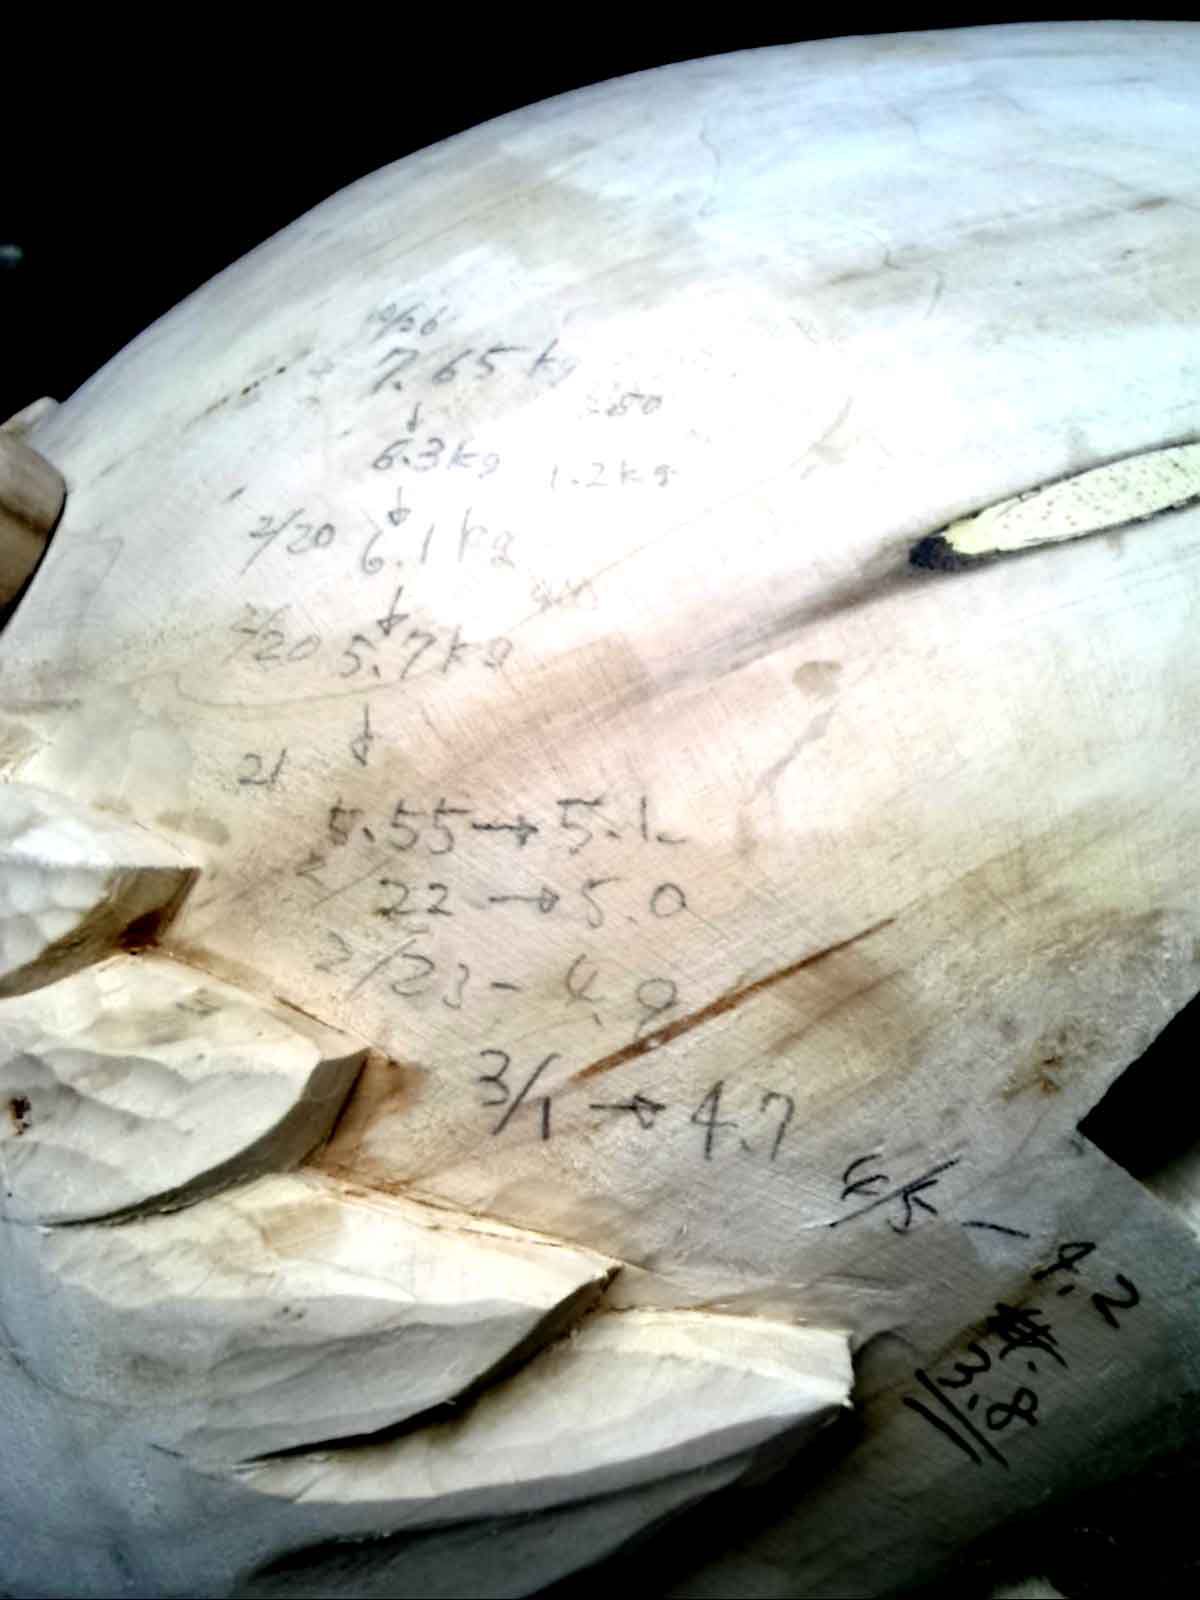 7.65kg
↓
6.3kg 1.2kg
↓
2/20 6.1kg
↓
2/20 5.7kg
↓
21
5.55→5.1
2/22→5.0
2/23-4.9
3/1→4.7
4/5-4.2
3.8